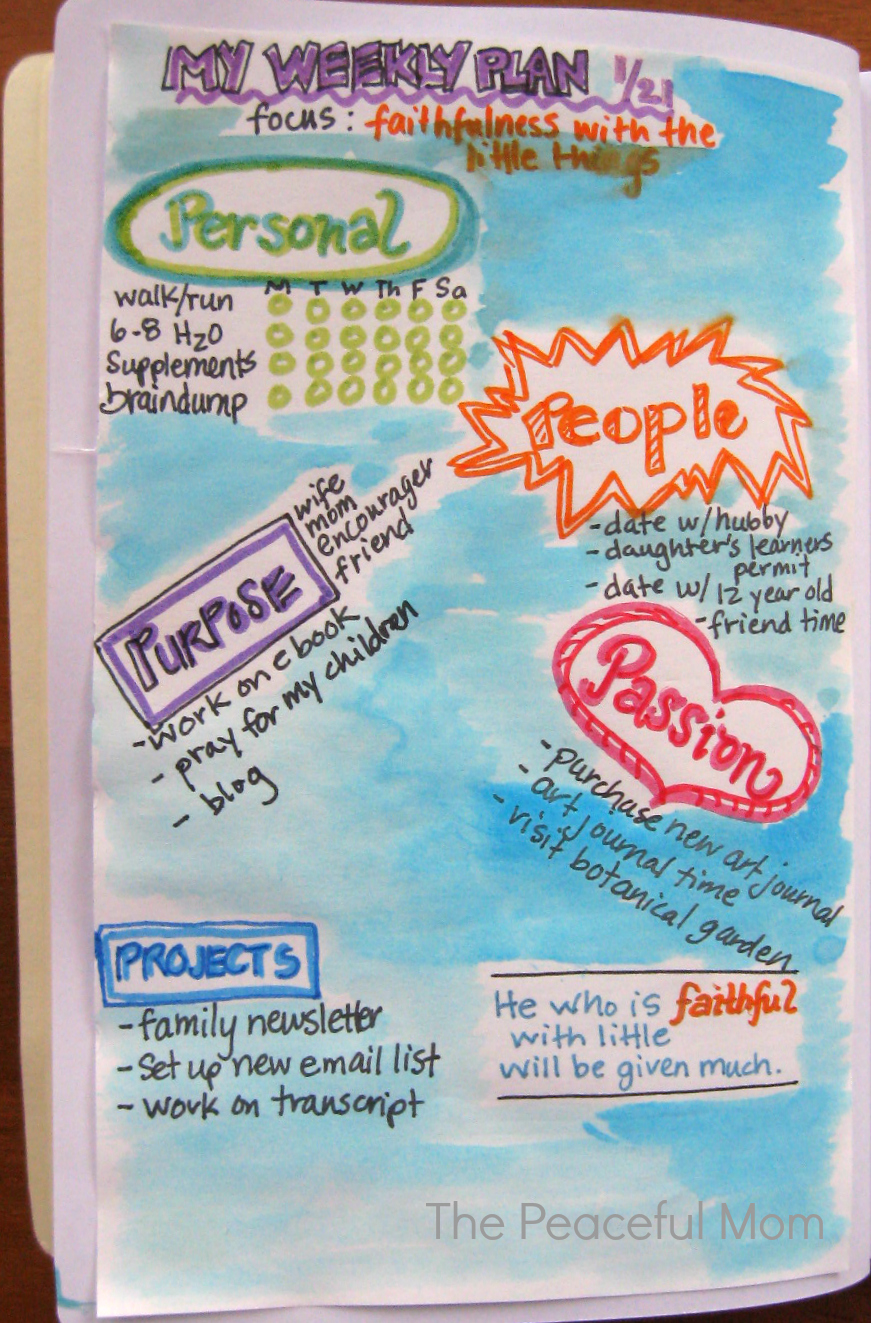 MY WEEKLY PLAN 1/21
focus: faithfulness with the
little things
Personal
M T W Th F Sa
walk/run
6-8 H2O
Supplements
braindump
People
-date w/hubby
-daughter's learners
permit
-date w/ 12 year old
-friend time
PURPOSE
wife
mom
encourager
friend
-work on ebook
- pray for my children
- blog
Passion
-purchase new art journal
- art journal time
- visit botanical garden
PROJECTS
-family newsletter
-Set up new email list
- work on transcript
He who is faithful
with little
will be given much.
The Peaceful Mom